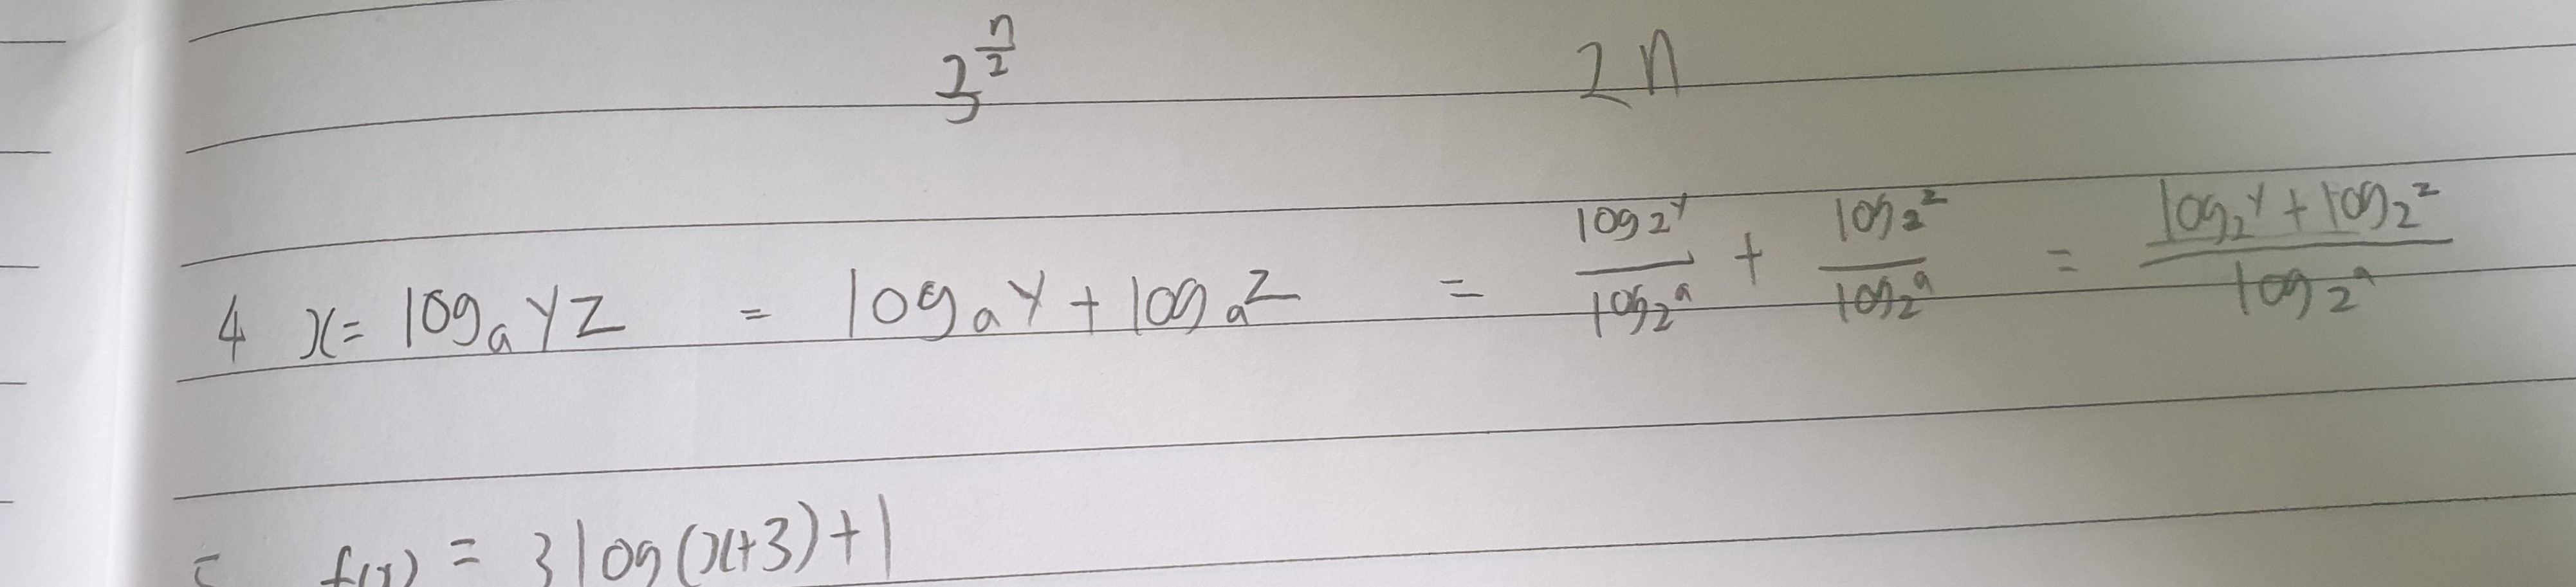 3^(n/2) 2n
4 x = log_a YZ = log_a Y + log_a Z = (log_2 Y)/(log_2 a) + (log_2 Z)/(log_2 a) = (log_2 Y + log_2 Z)/(log_2 a)
f(x) = 3 log(x+3)+1